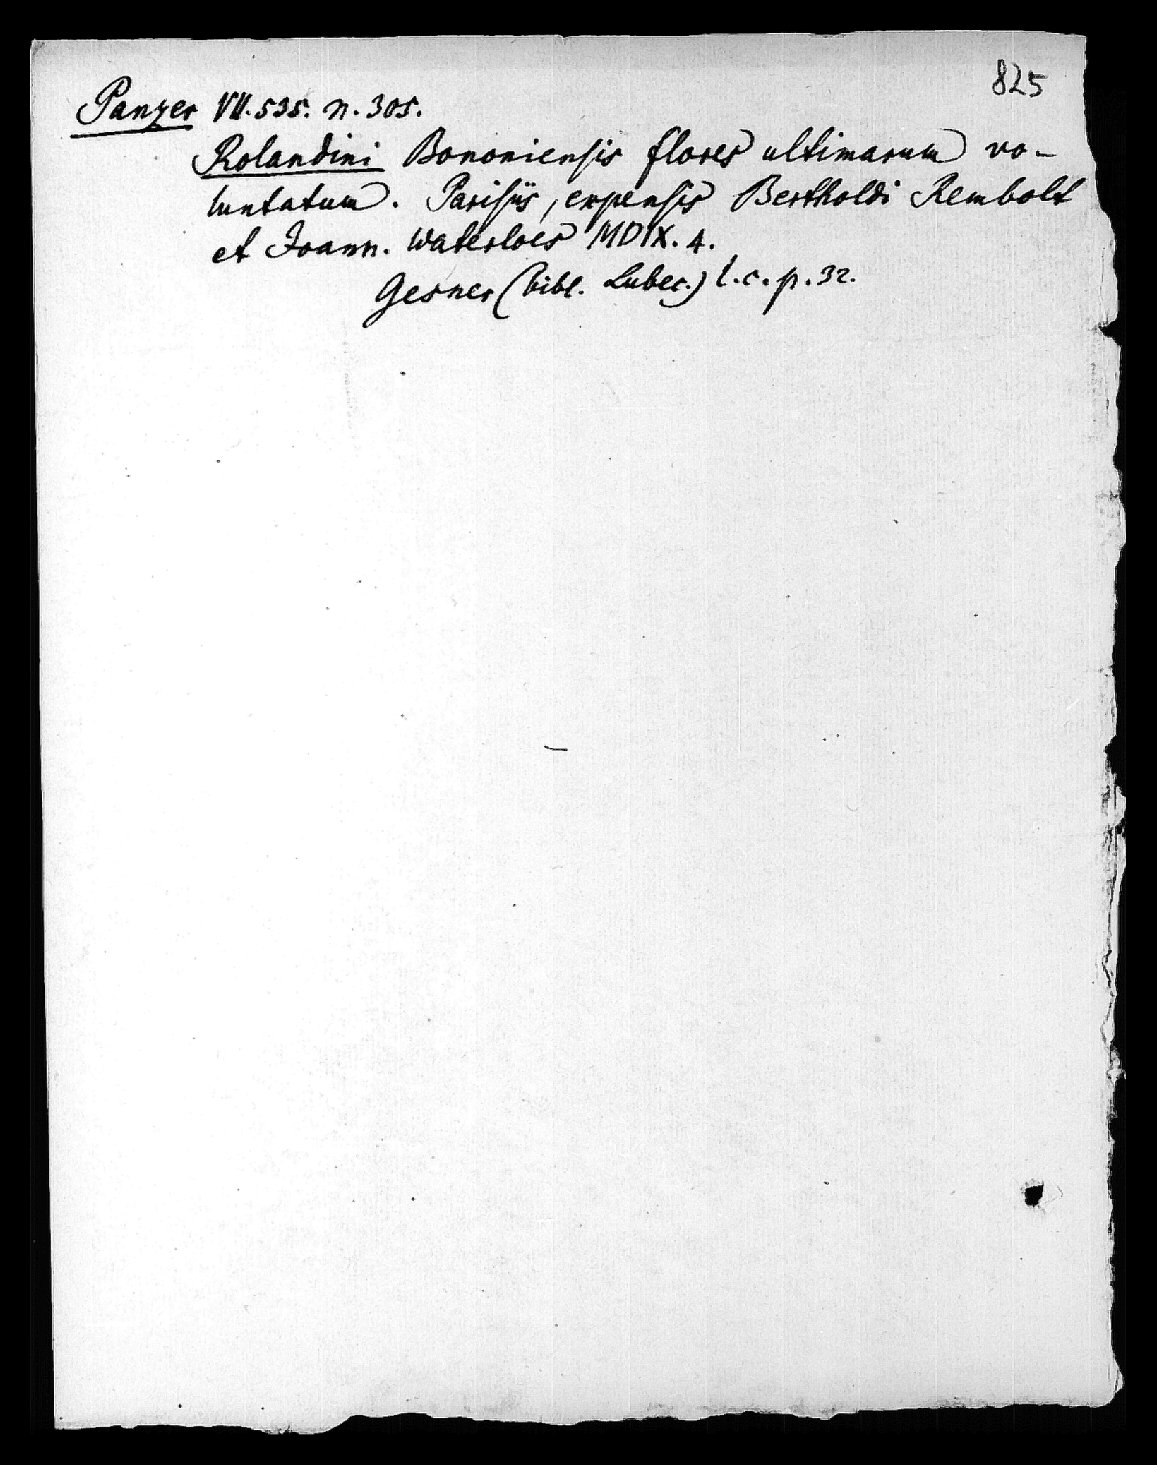 825
Panzer VII. 535. n. 305.
Rolandini Bononiensis flores ultimarum vo-
luntatum. Parisiis, expensis Bertholdi Rembolt
et Joann. Waterloes MDIX. 4.
Gesner (bibl. Lubec.) l. c. p. 32.